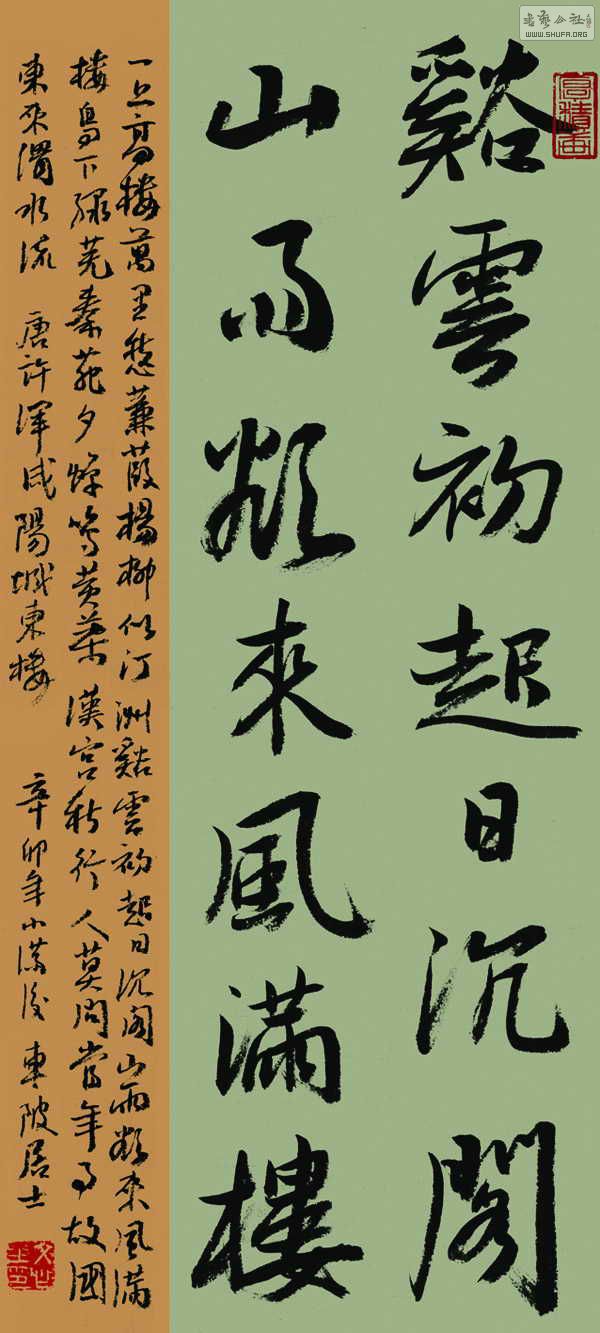 書藝公社
WWW.SHUFA.ORG
谿雲初起日沉閣
山雨欲來風滿樓
一上高樓萬里愁蒹葭楊柳似汀洲谿雲初起日沉閣山雨欲來風滿
樓鳥下綠蕪秦苑夕蟬鳴黃葉漢宮秋行人莫問當年事故國
東來渭水流 唐許渾咸陽城東樓 辛卯年小滿後 東陂居士